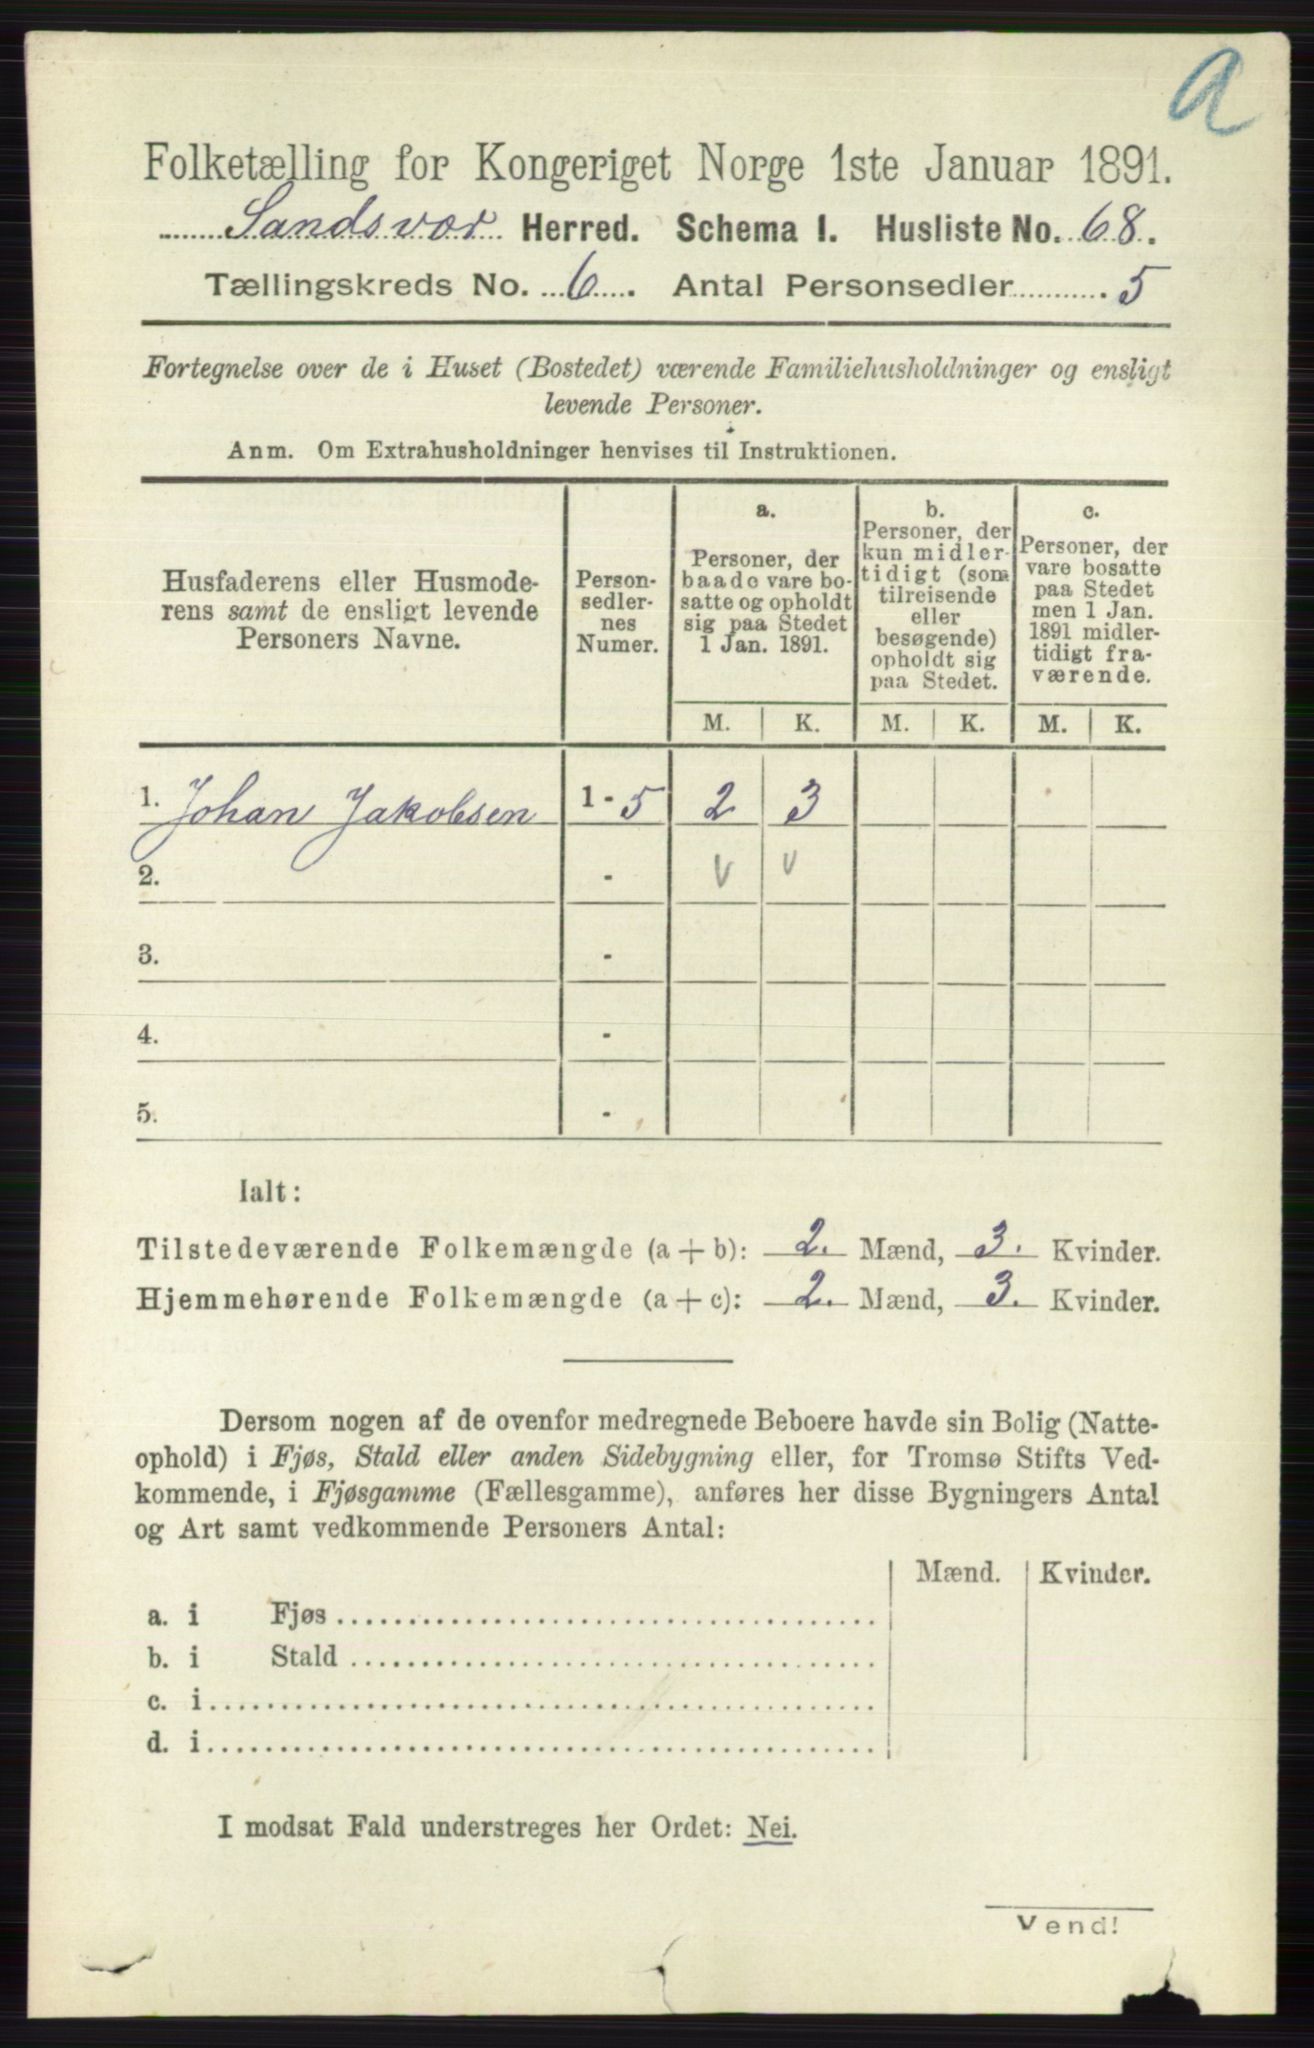 a
Folketælling for Kongeriget Norge 1ste Januar 1891.
Sandsvær Herred. Schema I. Husliste No. 68.
Tællingskreds No. 6. Antal Personsedler 5
Fortegnelse over de i Huset (Bostedet) værende Familiehusholdninger og ensligt
levende Personer.
Anm. Om Extrahusholdninger henvises til Instruktionen.
Husfaderens eller Husmode-
rens samt de ensligt levende
Personers Navne.
Person-
sedler-
nes
Numer.
a.
Personer, der
baade vare bo-
satte og opholdt
sig paa Stedet
1 Jan. 1891.
b.
Personer, der
kun midler-
tidigt (som
tilreisende
eller
besøgende)
opholdt sig
paa Stedet.
c.
Personer, der
vare bosatte
paa Stedet
men 1 Jan.
1891 midler-
tidigt fra-
værende.
M. K. M. K. M. K.
1. Johan Jakobsen 1 - 5 2 3
2. - v v
3. -
4. -
5. -
Ialt:
Tilstedeværende Folkemængde (a + b): 2. Mænd, 3. Kvinder.
Hjemmehørende Folkemængde (a + c): 2. Mænd, 3. Kvinder.
Dersom nogen af de ovenfor medregnede Beboere havde sin Bolig (Natte-
ophold) i Fjøs, Stald eller anden Sidebygning eller, for Tromsø Stifts Ved-
kommende, i Fjøsgamme (Fællesgamme), anføres her disse Bygningers Antal
og Art samt vedkommende Personers Antal:
Mænd. Kvinder.
a. i Fjøs
b. i Stald
c. i
d. i
I modsat Fald understreges her Ordet: Nei.
Vend!